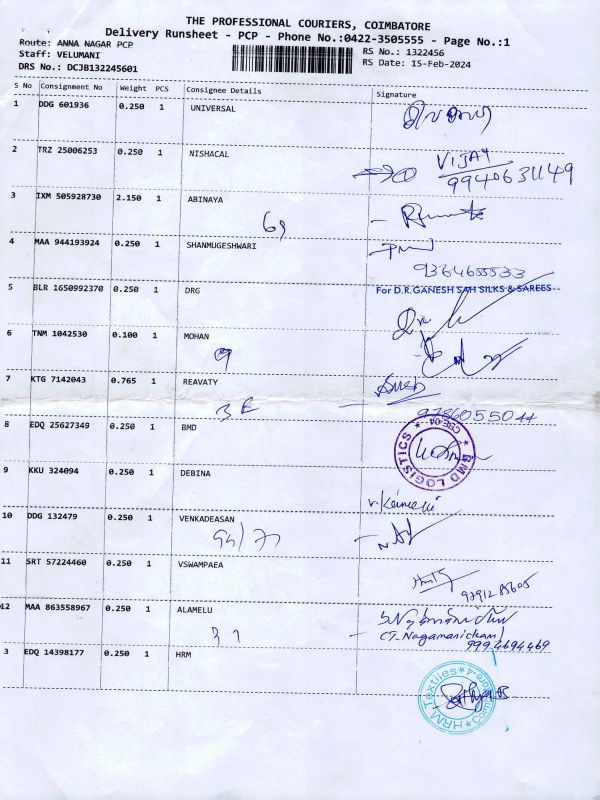 THE PROFESSIONAL COURIERS, COIMBATORE
Delivery Runsheet - PCP - Phone No.:0422-3505555 - Page No.:1
Route: ANNA NAGAR PCP
Staff: VELUMANI
DRS No.: DCJB132245601
RS No.: 1322456
RS Date: 15-Feb-2024
S No Consignment No Weight PCS Consignee Details Signature
1 DDG 601936 0.250 1 UNIVERSAL
2 TRZ 25006253 0.250 1 NISHACAL VIJAY
9940631149
3 IXM 505928730 2.150 1 ABINAYA
69
4 MAA 944193924 0.250 1 SHANMUGESHWARI
9364655533
5 BLR 1650992370 0.250 1 DRG For D.R.GANESH SAH SILKS & SAREES
6 TNM 1042530 0.100 1 MOHAN
9
7 KTG 7142043 0.765 1 REAVATY
3E 9786055044
8 EDQ 25627349 0.250 1 BMD
BMD LOGISTICS CBE-04
9 KKU 324094 0.250 1 DEBINA
10 DDG 132479 0.250 1 VENKADEASAN
94/77
11 SRT 57224460 0.250 1 VSWAMPAEA
9791285605
12 MAA 863558967 0.250 1 ALAMELU
31 CT. Nagamanickam
9994694469
3 EDQ 14398177 0.250 1 HRM
HRM Textiles